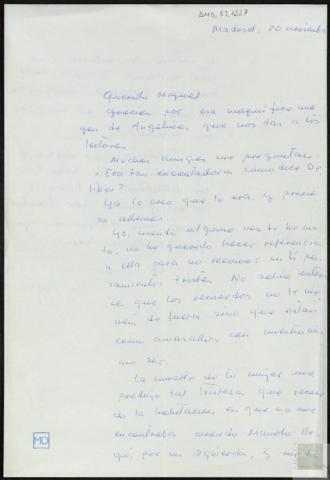 AMD, 51, 1227
Madrid, 20 noviembre
Querido Miguel:
Gracias por esa magnífica ima
gen de Angelines que nos das a los
lectores.
Muchas amigas me preguntan
¿Era tan encantadora como dice De
libes?
Ya lo creo que lo era, y precio
sa además.
Yo, cuando alguna vez te he vis
to, no he querido hacer referencia
a ella para no reavivar en ti pen
samientos tristes. No sabía enton
ces que los recuerdos no te ve
nían de fuera sino que estaban
como amasados con nuestro
ser.
La muerte de tu mujer me
produjo tal tristeza que recuer
do la habitación en que yo me
encontraba cuando Manolo lle
gó, por la izquierda, y
MD